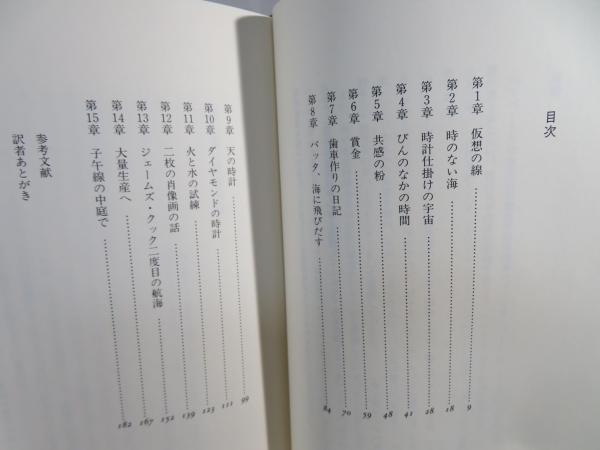 目次
第1章 仮想の線……9
第2章 時のない海……18
第3章 時計仕掛けの宇宙……28
第4章 びんのなかの時間……41
第5章 共感の粉……48
第6章 賞金……59
第7章 歯車作りの日記……70
第8章 バッタ、海に飛びだす……84
第9章 天の時計……99
第10章 ダイヤモンドの時計……111
第11章 火と水の試練……123
第12章 二枚の肖像画の話……139
第13章 ジェームズ・クック二度目の航海……152
第14章 大量生産へ……167
第15章 子午線の中庭で……182
参考文献
訳者あとがき